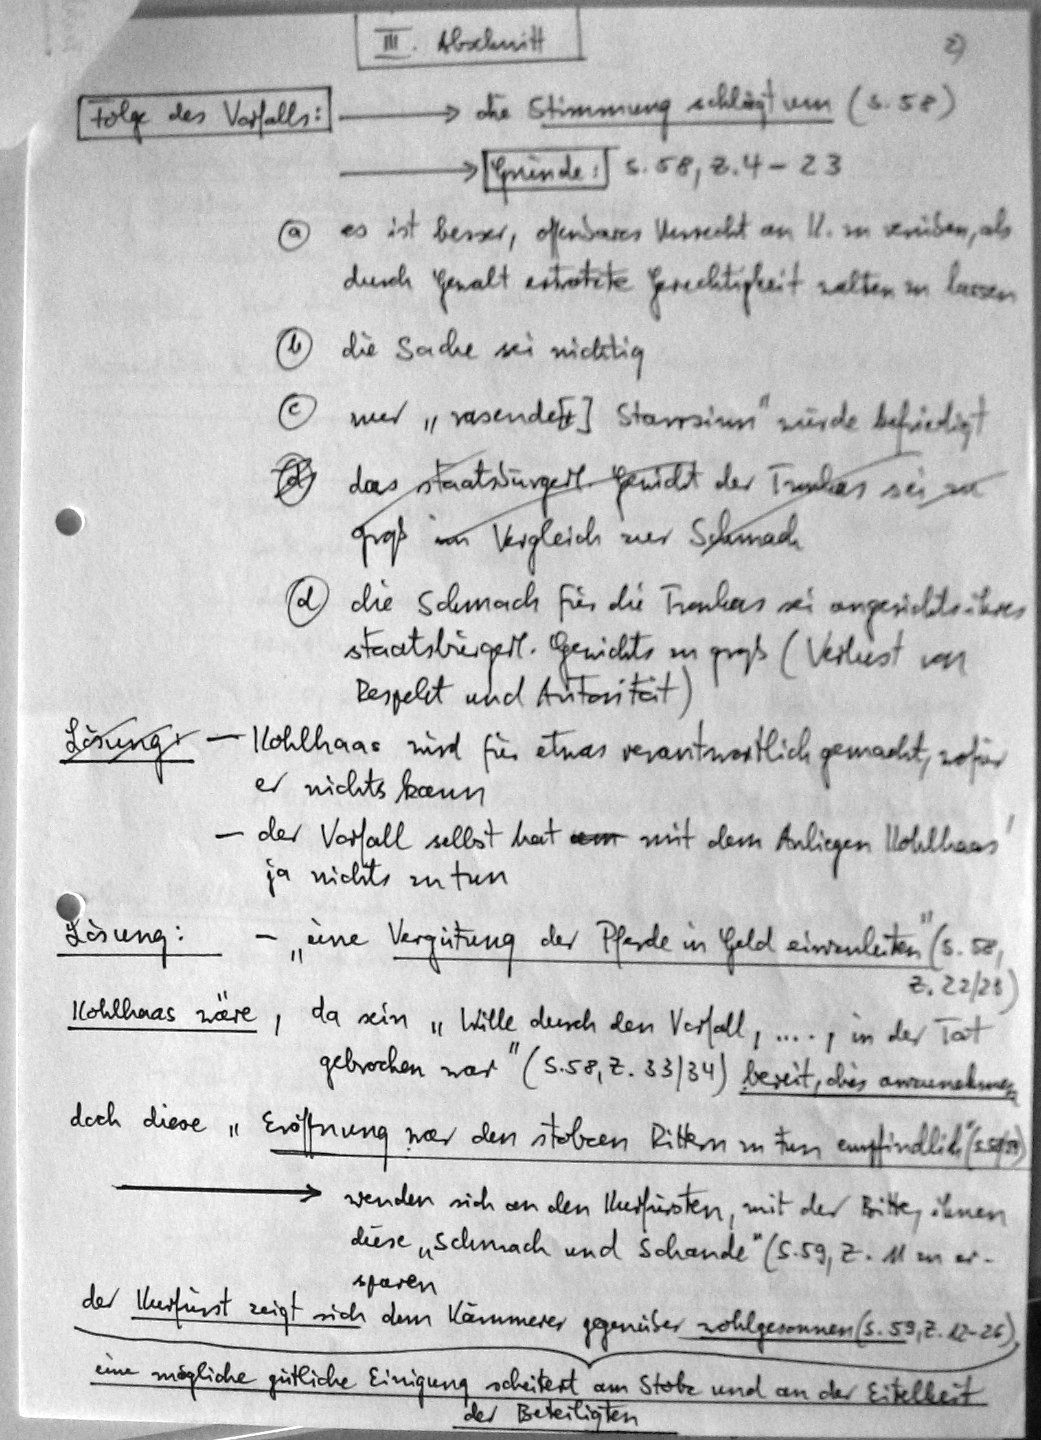 III. Abschnitt
2)
Folge des Vorfalls: → die Stimmung schlägt um (S. 58)
→ Gründe: S. 58, Z. 4 - 23
a es ist besser, offenbares Unrecht an K. zu verüben, als
durch Gewalt ertrotzte Gerechtigkeit walten zu lassen
b die Sache sei nichtig
c nur „rasende[r] Starrsinn" würde befriedigt
d das staatsbürgerl. Gewicht der Tronkas sei zu
groß im Vergleich zur Schmach
d die Schmach für die Tronkas sei angesichts ihres
staatsbürgerl. Gewichts zu groß (Verlust von
Respekt und Autorität)
Lösung: — Kohlhaas wird für etwas verantwortlich gemacht, wofür
er nichts kann
— der Vorfall selbst hat mit dem Anliegen Kohlhaas'
ja nichts zu tun
Lösung: — „eine Vergütung der Pferde in Geld einzuleiten" (S. 58,
Z. 22/23)
Kohlhaas wäre, da sein „Wille durch den Vorfall, ...., in der Tat
gebrochen war" (S. 58, Z. 33/34) bereit, dies anzunehmen,
doch diese „Eröffnung war den stolzen Rittern zu tun empfindlich" (S. 58/59)
→ wenden sich an den Kurfürsten, mit der Bitte, ihnen
diese „Schmach und Schande" (S. 59, Z. 11 zu er-
sparen
der Kurfürst zeigt sich dem Kämmerer gegenüber wohlgesonnen (S. 59, Z. 12-26),
eine mögliche gütliche Einigung scheitert am Stolz und an der Eitelkeit
der Beteiligten